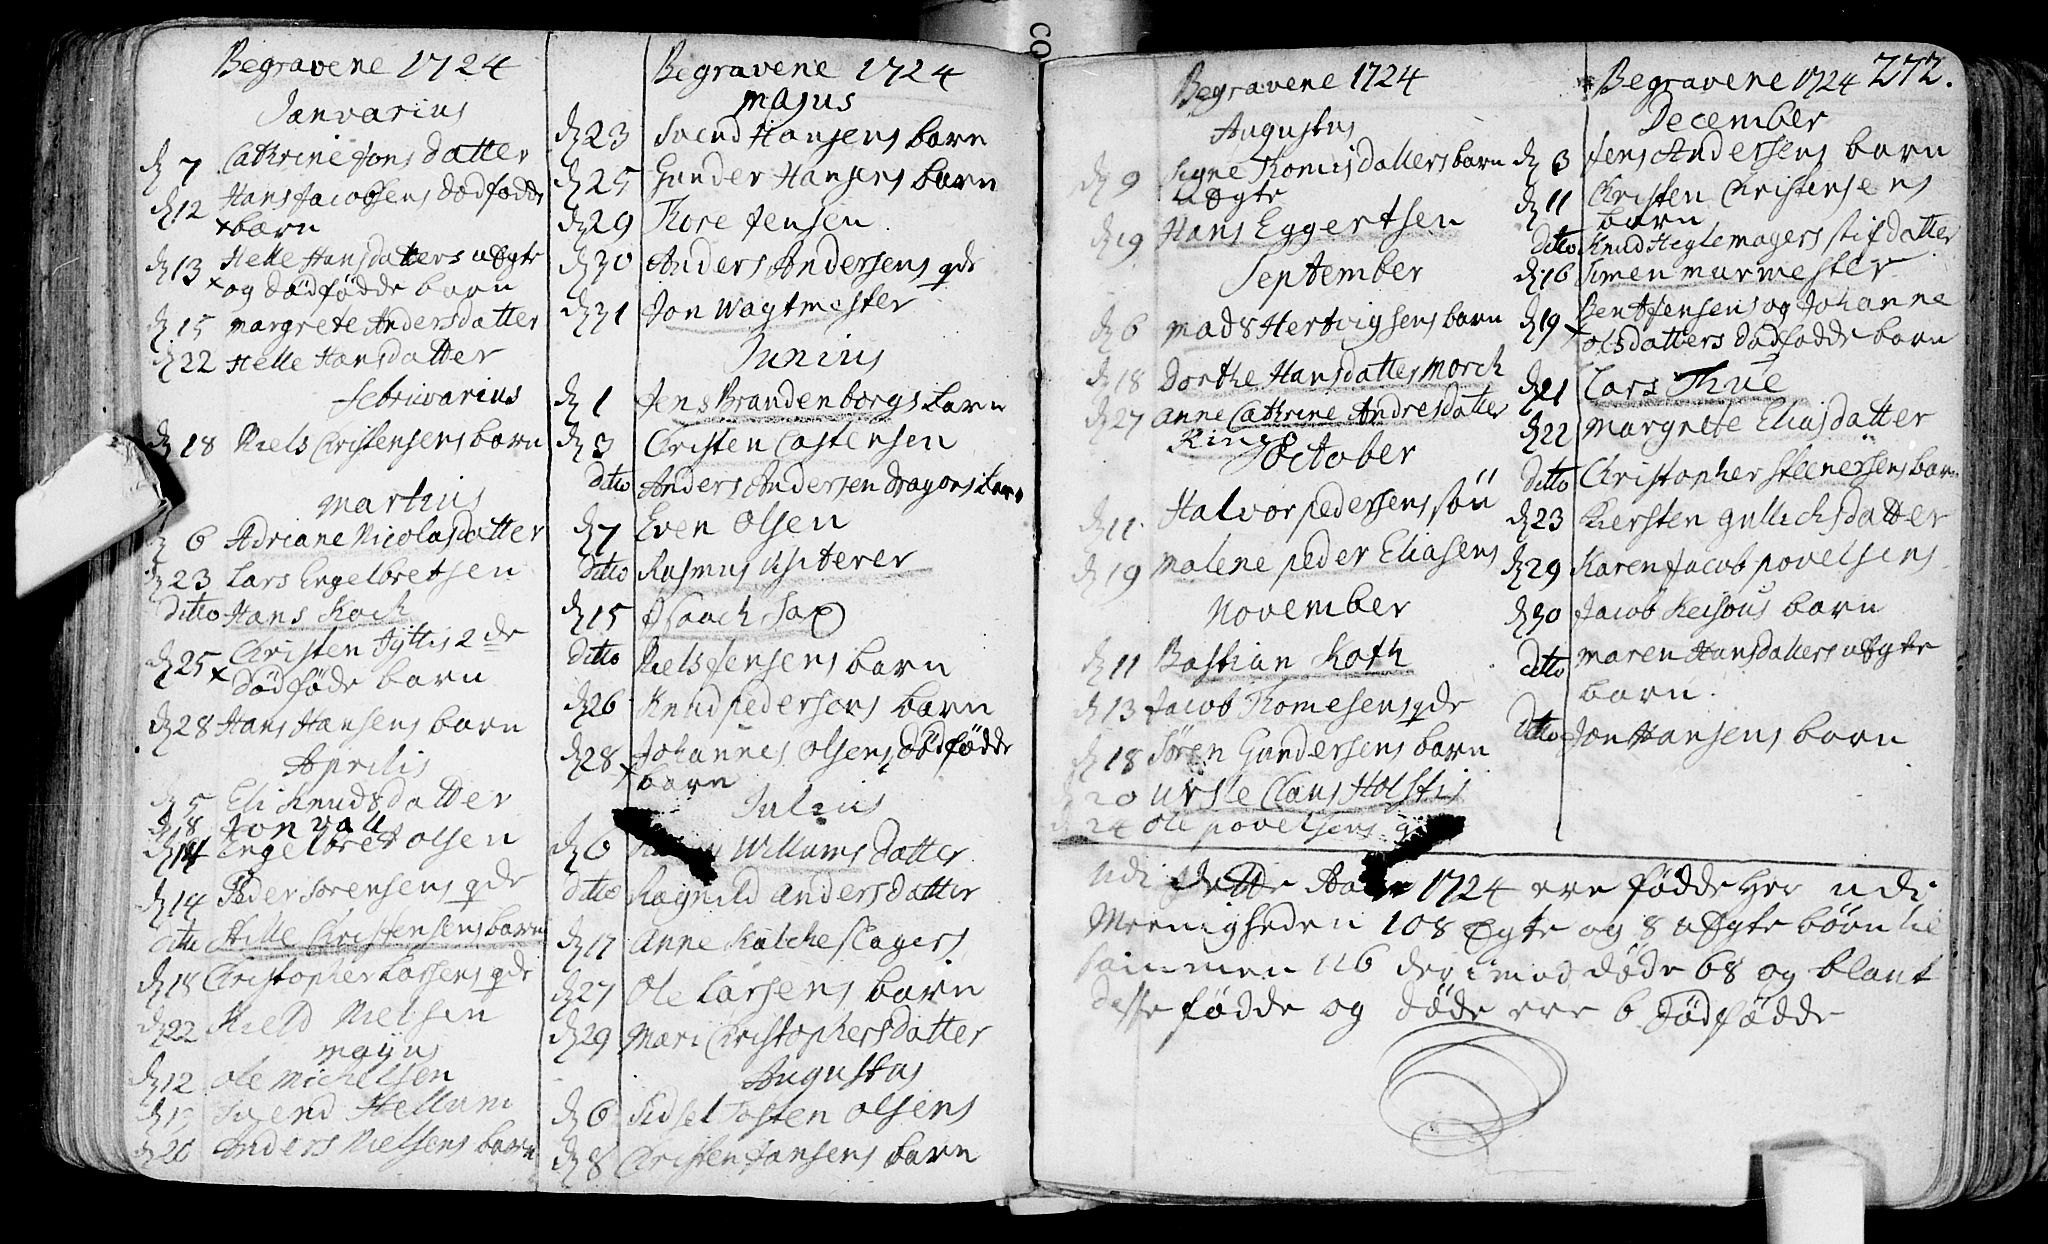 Begravene 1724
Janvarius
d 7 Cathrine Jons datter
d 12 Hans Jacobsens dødfødde
x barn
d 13 Helle Hansdatters uægte
x og dødfødde barn
d 15 Margrete Andersdatter
d 22 Helle Hansdatter
Febriuvarius
d 18 Niels Christensens barn
Martius
6 Adriane Nicolasdatter
d 23 Lars Engelbretsen
Ditto Hans Koch
d 25 Christen Jÿttis 2de
x dødføde barn
d 28 Hans Hansens barn
Aprilis
d 5 Eli Knudsdatter
d 8 Jon vall
d 14 Engelbret Olsen
d 14 Peder Sørensens qde
Ditto Hille Christensens barn
d 18 Christopher Lassens qde
d 22 Kield Nielsen
Majus
d 12 Ole Michelsen
Svend Hellum
d 20 Anders Nielsens barn
Begravene 1724
Majus
d 23 Svend Hansens barn
d 25 Gunder Hansens barn
d 29 Thore Jensen
d 30 Anders Andersens qde
d 31 Jon Wagtmester
Junius
d 1 Jens Brandenborgs barn
d 3 Christen Castensen
Ditto Anders Andersen Dragons barn
d 7 Even Olsen
Ditto Rasmus
d 15 Isaach Sax
Ditto Niels Jensens barn
d 26 Knud pedersens barn
d 28 Johannes Olsens dødfødde
x barn
Julius
d 6 Willums datter
Ditto Ragnild Andersdatter
d 17 Anne Kalcheslagers
d 27 Ole Larsens barn
d 29 Mari Christophersdatter
Augustus
d 6 Sidsel Tosten Olsens
d 8 Christen Jansens barn
Begravene 1724
Augustus
d 9 Signe Thomisdatters barn
uægte
d 19 Hans Eggertsen
September
d 6 Mads Hertvigsens barn
d 18 Dorthe Hansdatter Morch
d 27 Anne Cathrine Andresdatter
Rings
October
d 11 Halvor pedersens søn
d 19 Malene peder Eliasens
November
d 11 Bastian Roth
d 13 Jacob Thomesens qde
d 18 Søren Gundersens barn
d 20 Ursle Claus Holstis
d 24 Ole povelsens
Begravene 1724 272.
December
d 3 Jens Andersens barn
d 11 Christen Christensens
barn
Ditto Knud Heglemagers stifdatter
d 16 Simen murmester
d 19 Bent Jensens og Johanne
x olsdatters dødfødde barn
d 21 Lars Thue
d 22 Margrete Eliasdatter
Ditto Christopher Steenersens barn
d 23 Kiersten gullichsdatter
d 29 Karen Jacob povelsens
d 30 Jacob barn
Ditto Maren Hansdatters uægte
barn.
Ditto Jon Hansens barn
Udi dette Aar 1724 ere fødde her udi
Meenigheden 108 Ægte og 8 uÆgte børn til
sammen 116 derimod døde 68 og blant
disse fødde og døde ere 6 dødfødde